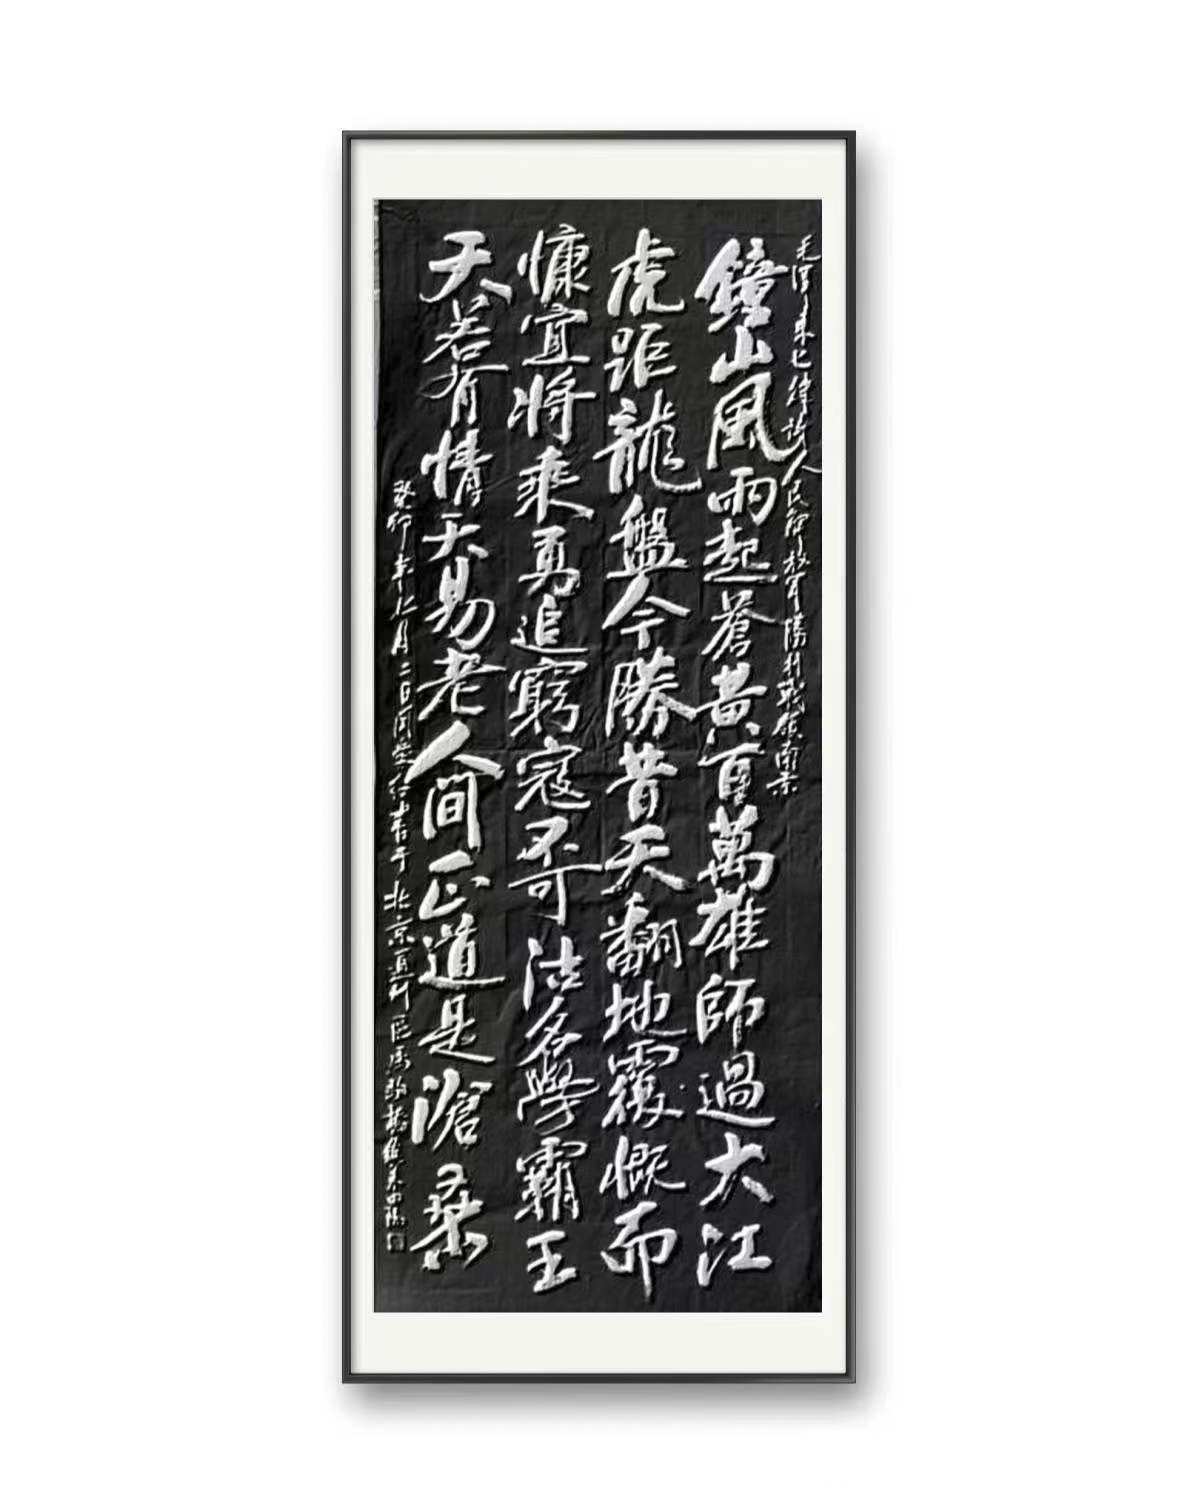 毛澤東七律詩人民解放軍勝利戰領南京
鐘山風雨起蒼黃百萬雄師過大江
虎距龍盤今勝昔天翻地覆慨而
慷宜將乘勇追窮寇不可沽名學霸王
天若有情天易老人間正道是滄桑
癸卯年仁月二日閆榮書于北京通州區馬駒橋